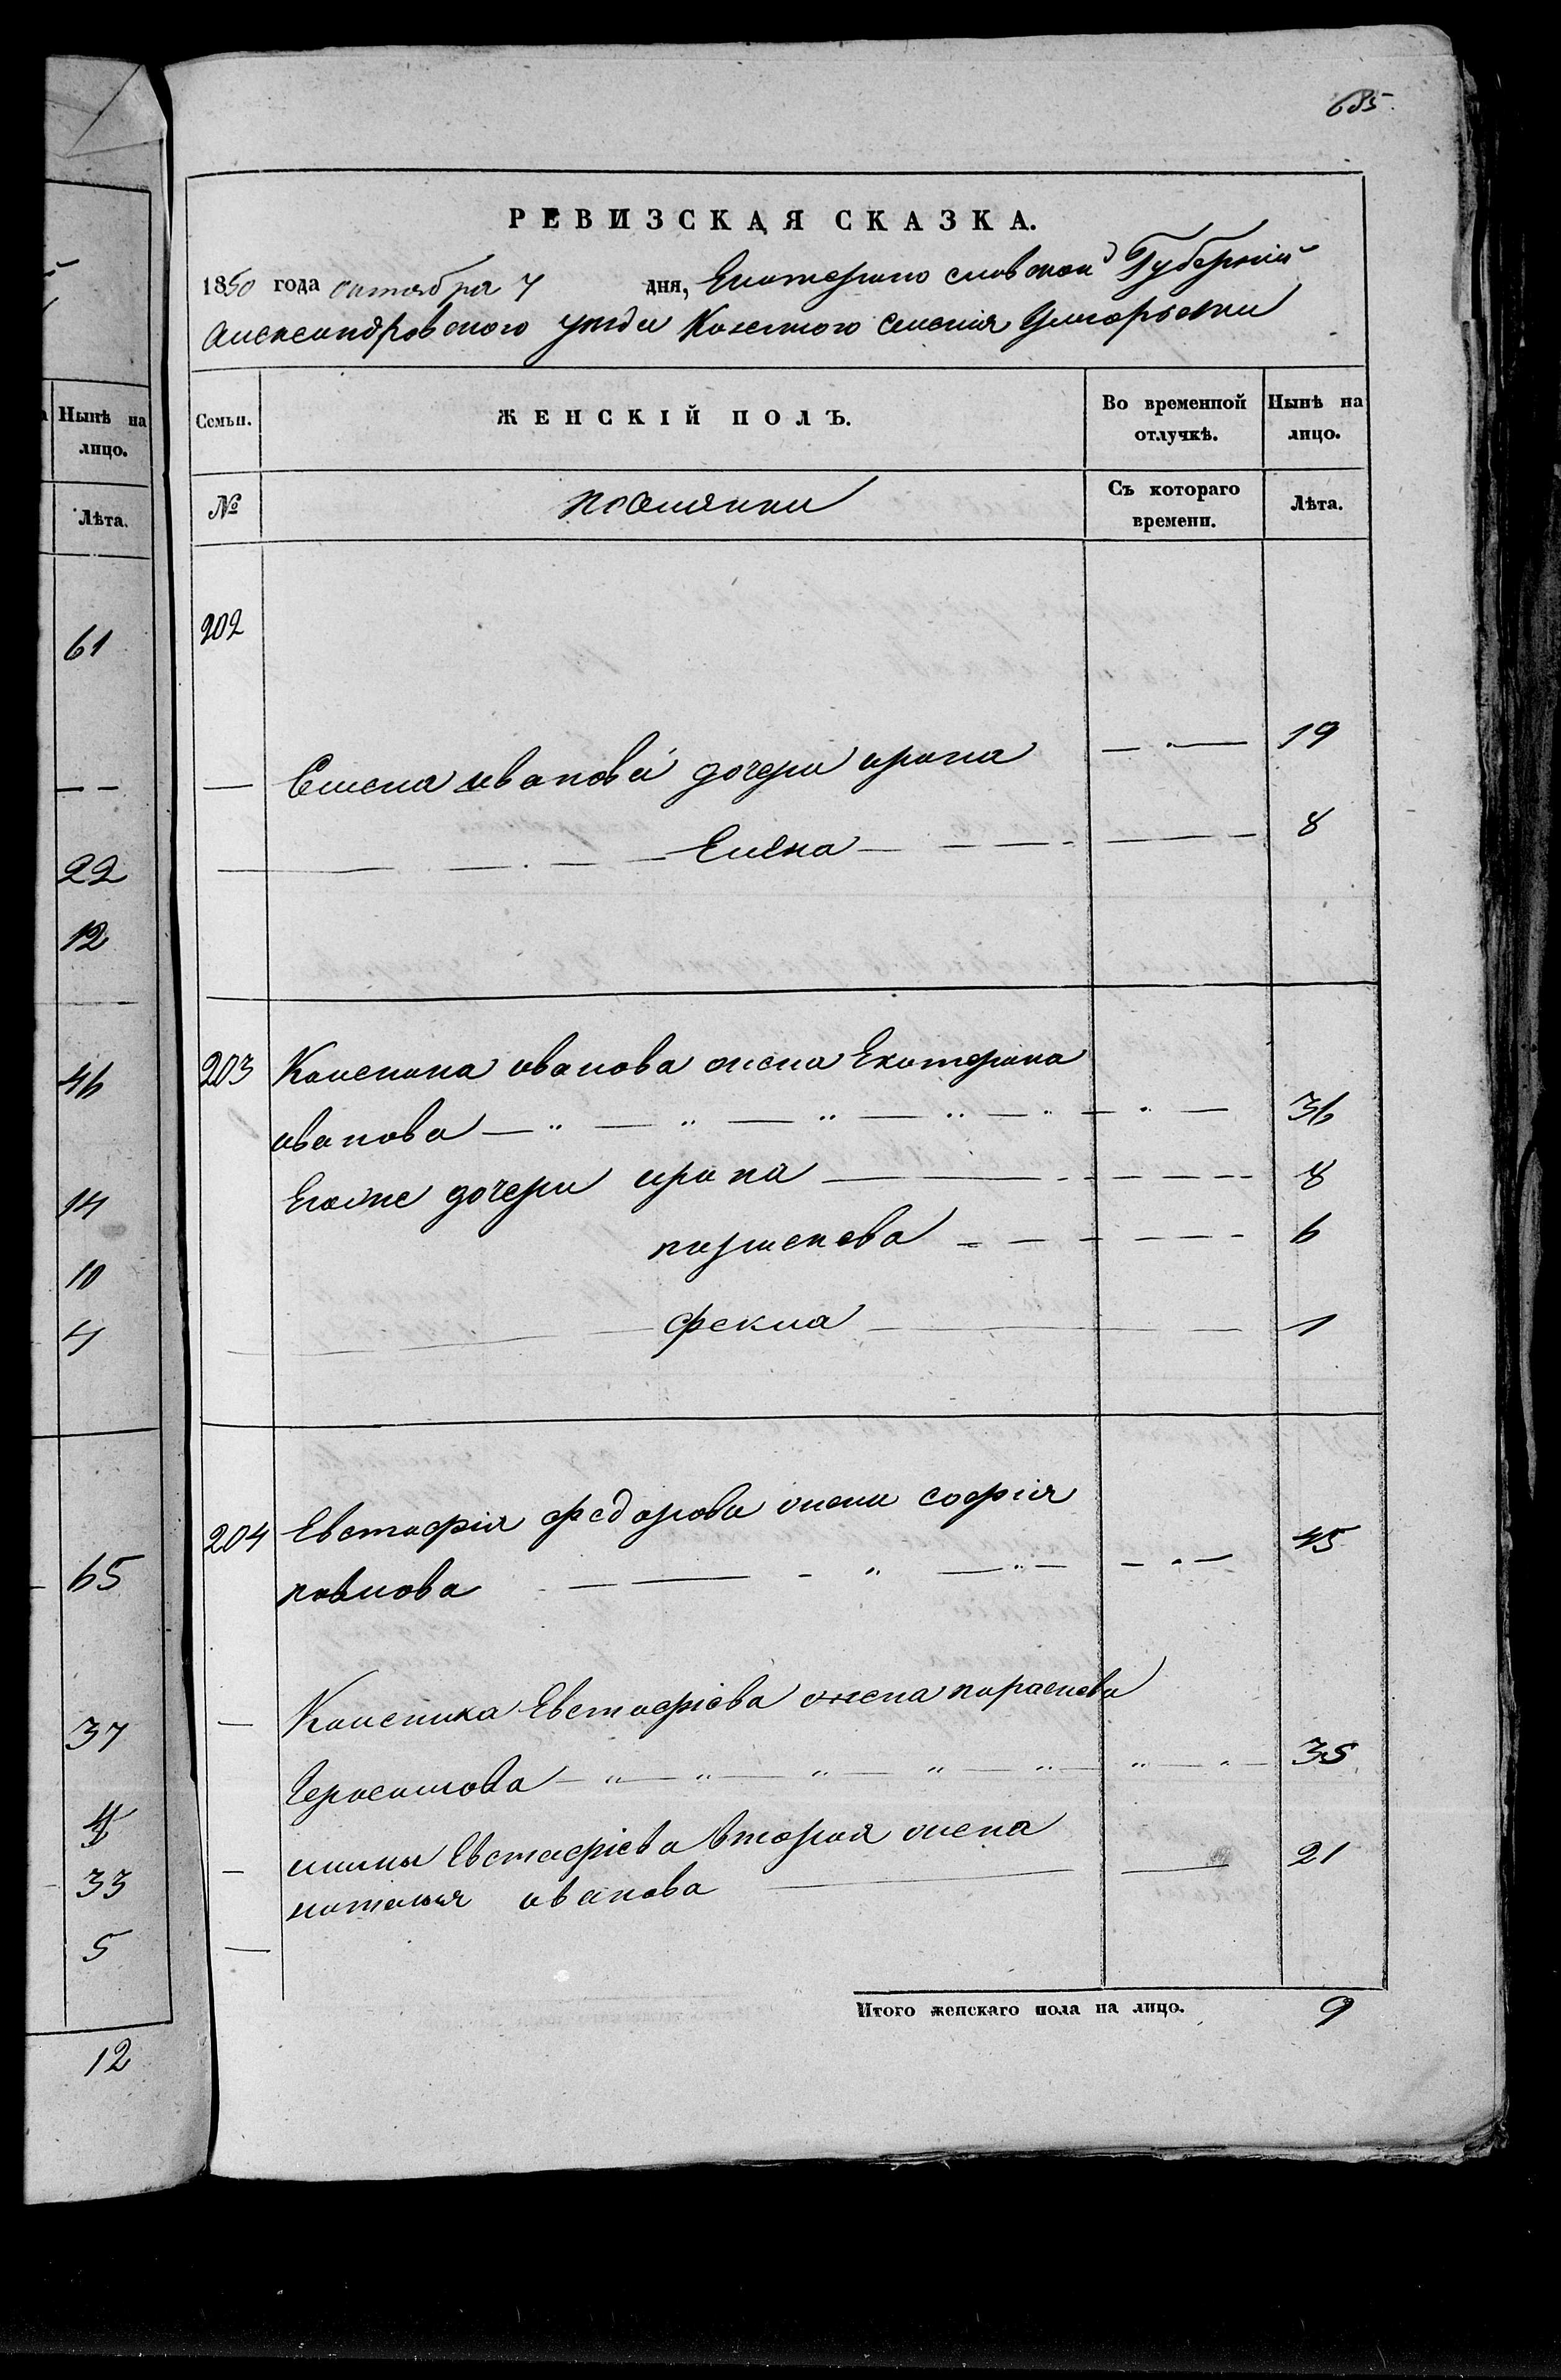 685
РЕВИЗСКАЯ СКАЗКА.
1850 года октября 7 дня, Екатерино славской Губерніи
Александровского уезда Казенного селенія Григорьевки
Нынѣ на лицо.
Семьи.
ЖЕНСКІЙ ПОЛЪ.
Во временной отлучкѣ.
Нынѣ на лицо.
Лѣта.
№
поселянки
Съ котораго времени.
Лѣта.
61
202
— — Семена иванова дочери ирина — · — 19
22
— Елена — 8
12
46
203 Калиника иванова жена Екатерина
иванова — " — " — " — 36
14
Егоже дочери ирина — 8
10
параскева — 6
4
фекла — 1
65
204 Евстафія федорова жена софія
павлова — " — " — 45
37
— Калиника Евстафіева жена параскева
Герасимова — " — " — " — 35
33
— Евстафіева вторая жена 21
наталья иванова
5
—
Итого женскаго пола на лицо. 9
12